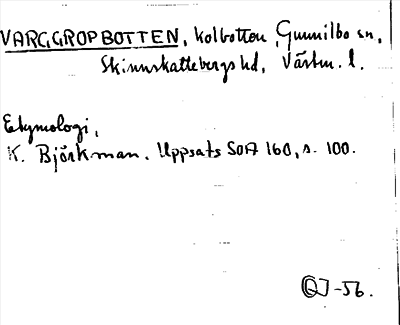 VARGGROPBOTTEN, kolbotten, Gunnilbo sn,
Skinnskattebergs hd, Västm. l.
Etymologi,
K. Björkman. Uppsats SOA 160, s. 100.
QJ-56.